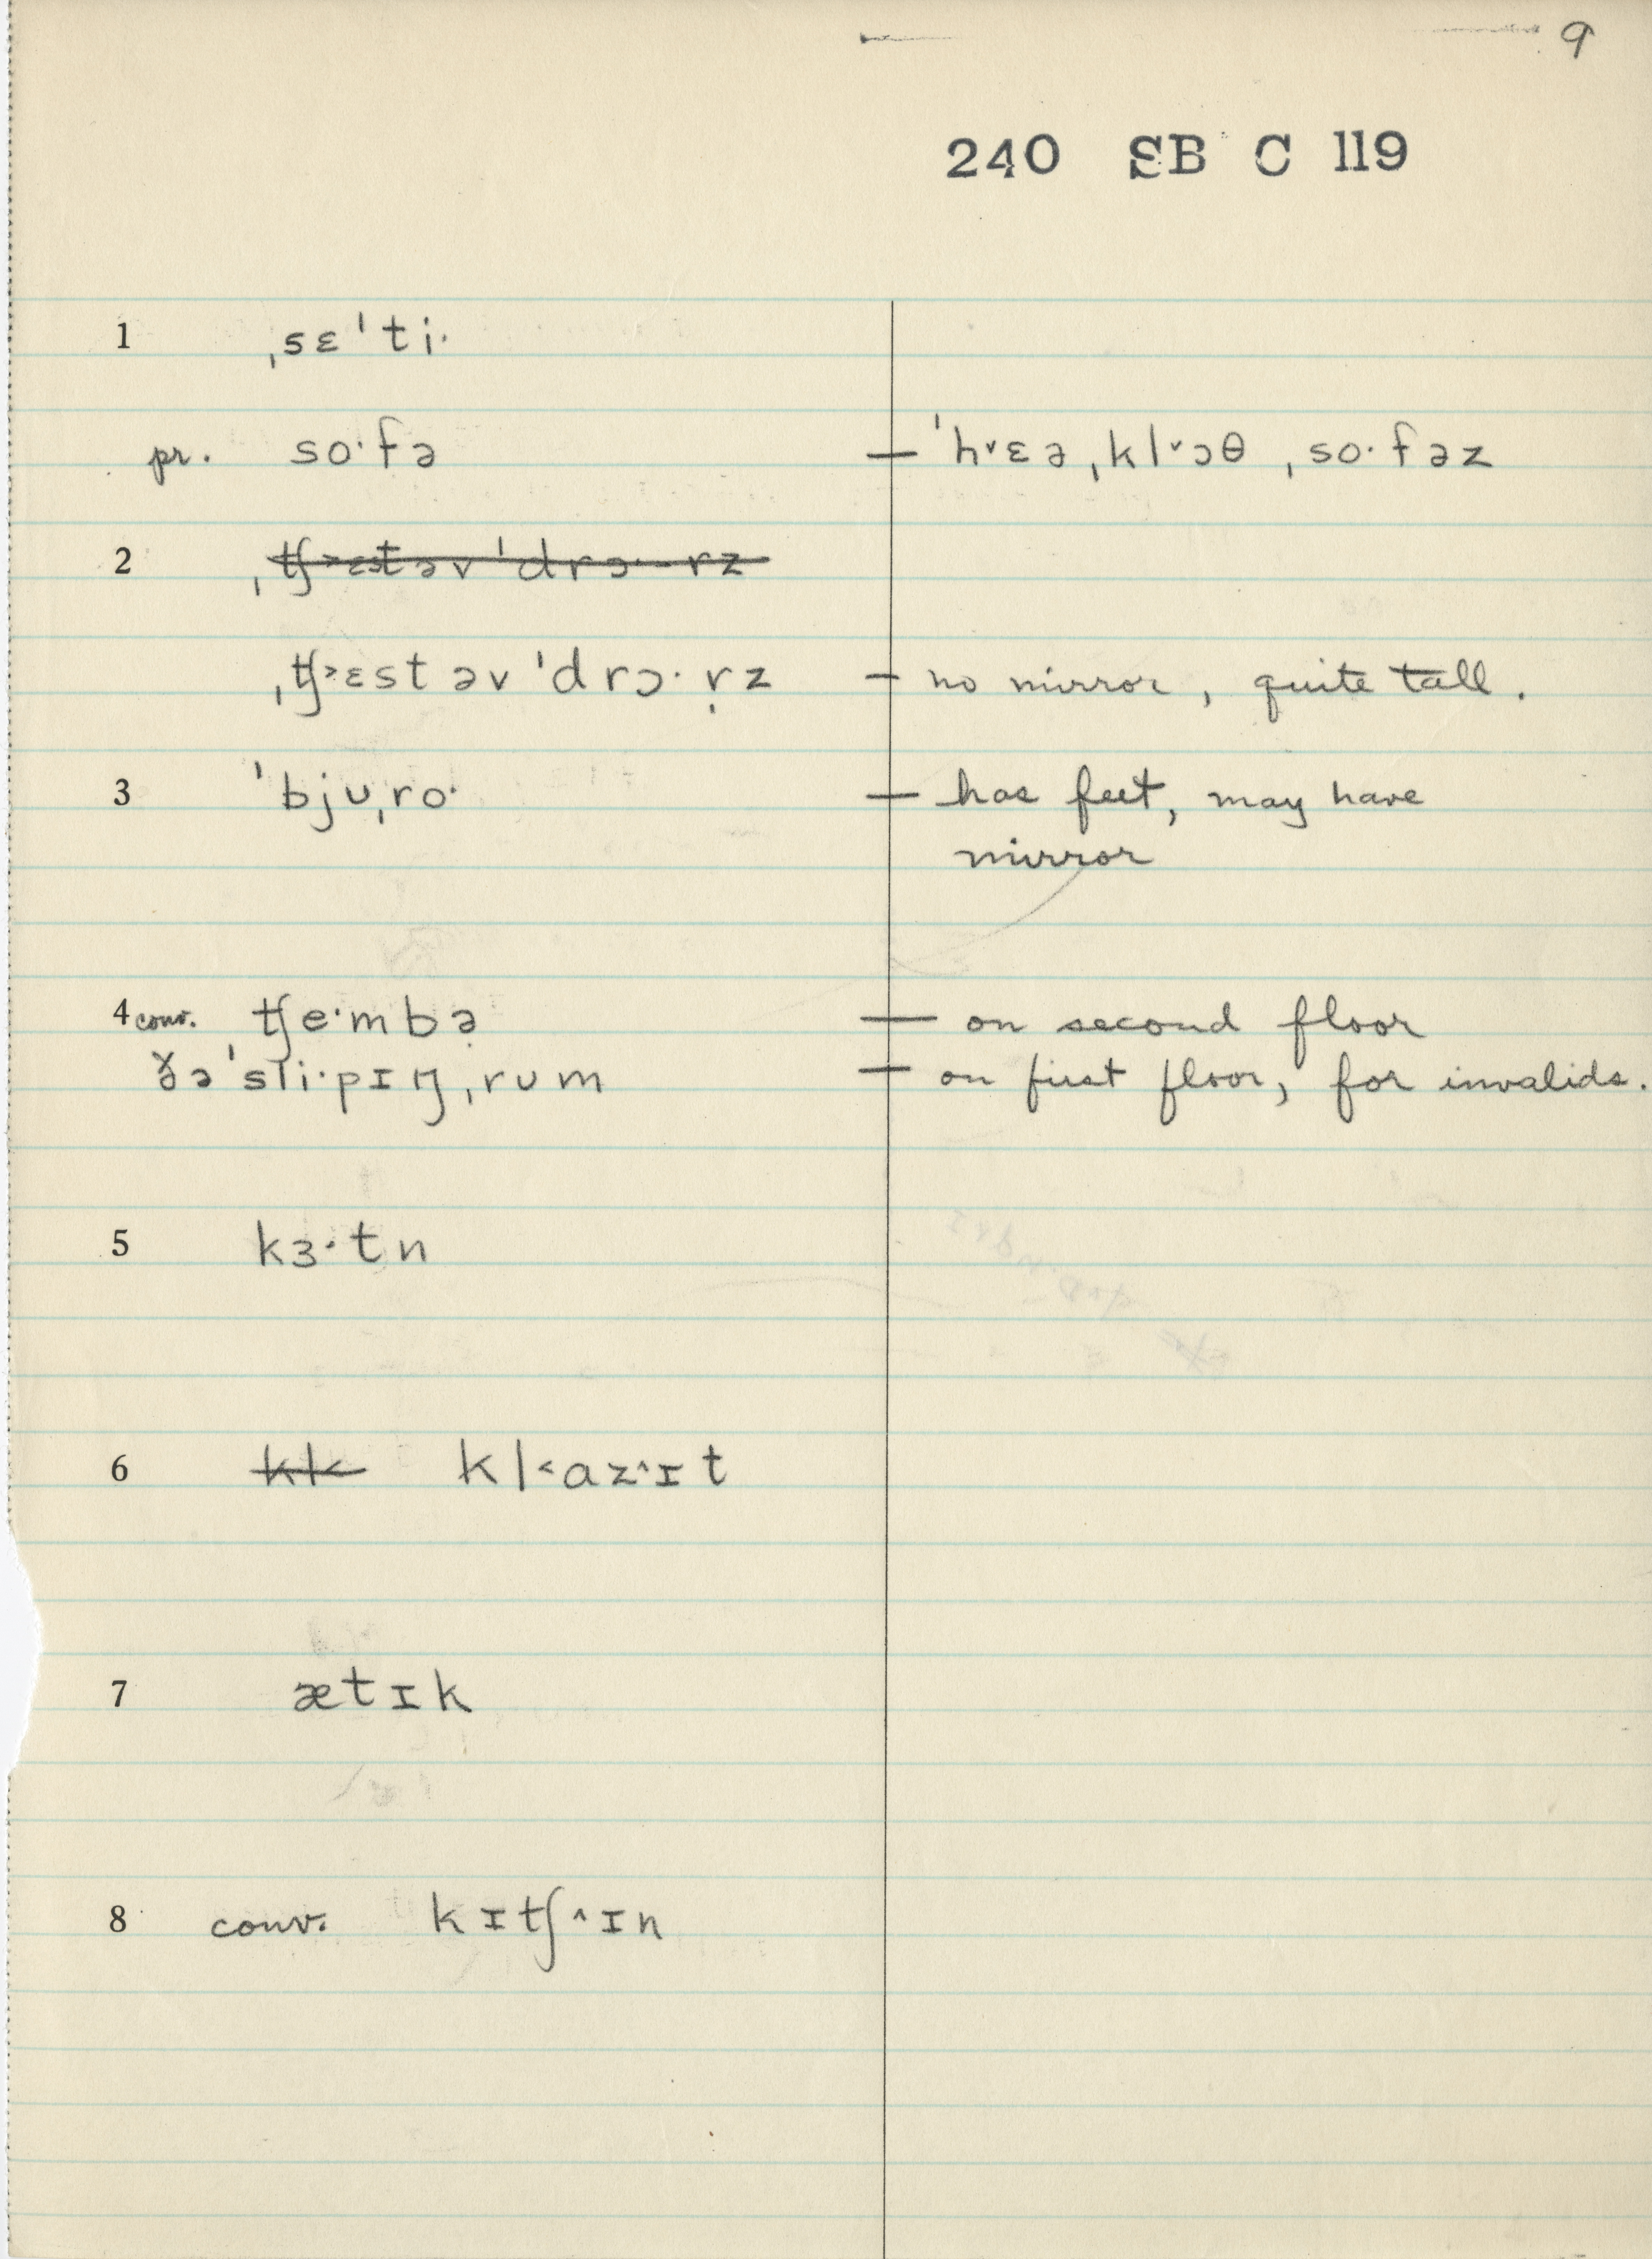 9
240 SB C 119
1 ˌsɛˈtiˑ
pr. soˑfə — ˈh˅ɛəˌkl˅ɔθ ˌsoˑfəz
2 ˌʧ˃ɛstəvˈdrɔˑrz
ˌʧ˃ɛstəvˈdrɔˑṛz — no mirror, quite tall.
3 ˈbjʊˌroˑ — has feet, may have
mirror
4 conv. ʧeˑmbə — on second floor
ðəˈsliˑpɪŋˌrʊm — on first floor, for invalids.
5 kɜˑtn
6 kl˂ kl˂ɑz˄ɪt
7 ætɪk
8 conv. kɪʧ˄ɪn